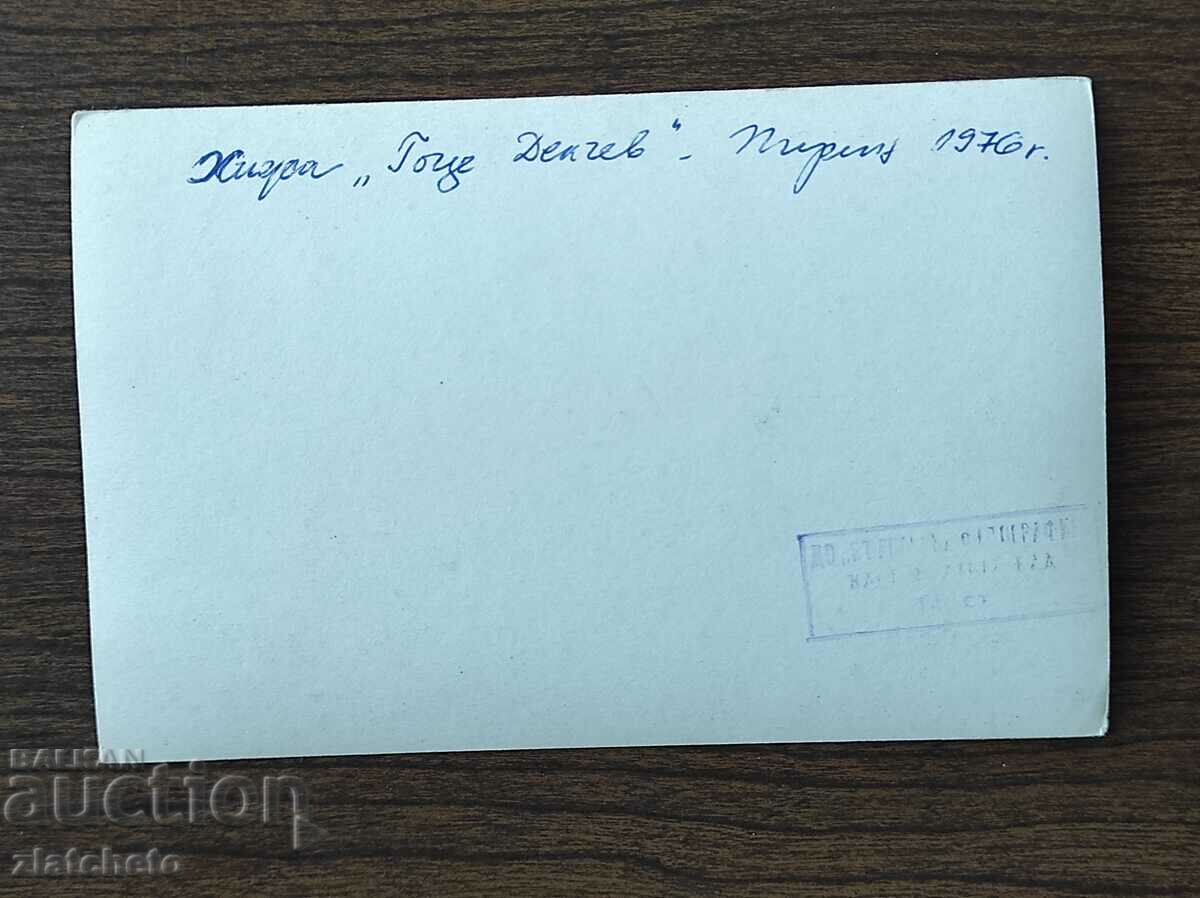 Хижа „Гоце Делчев“ - Пирин 1976 г.
BALKAN
auction
zlatcheto